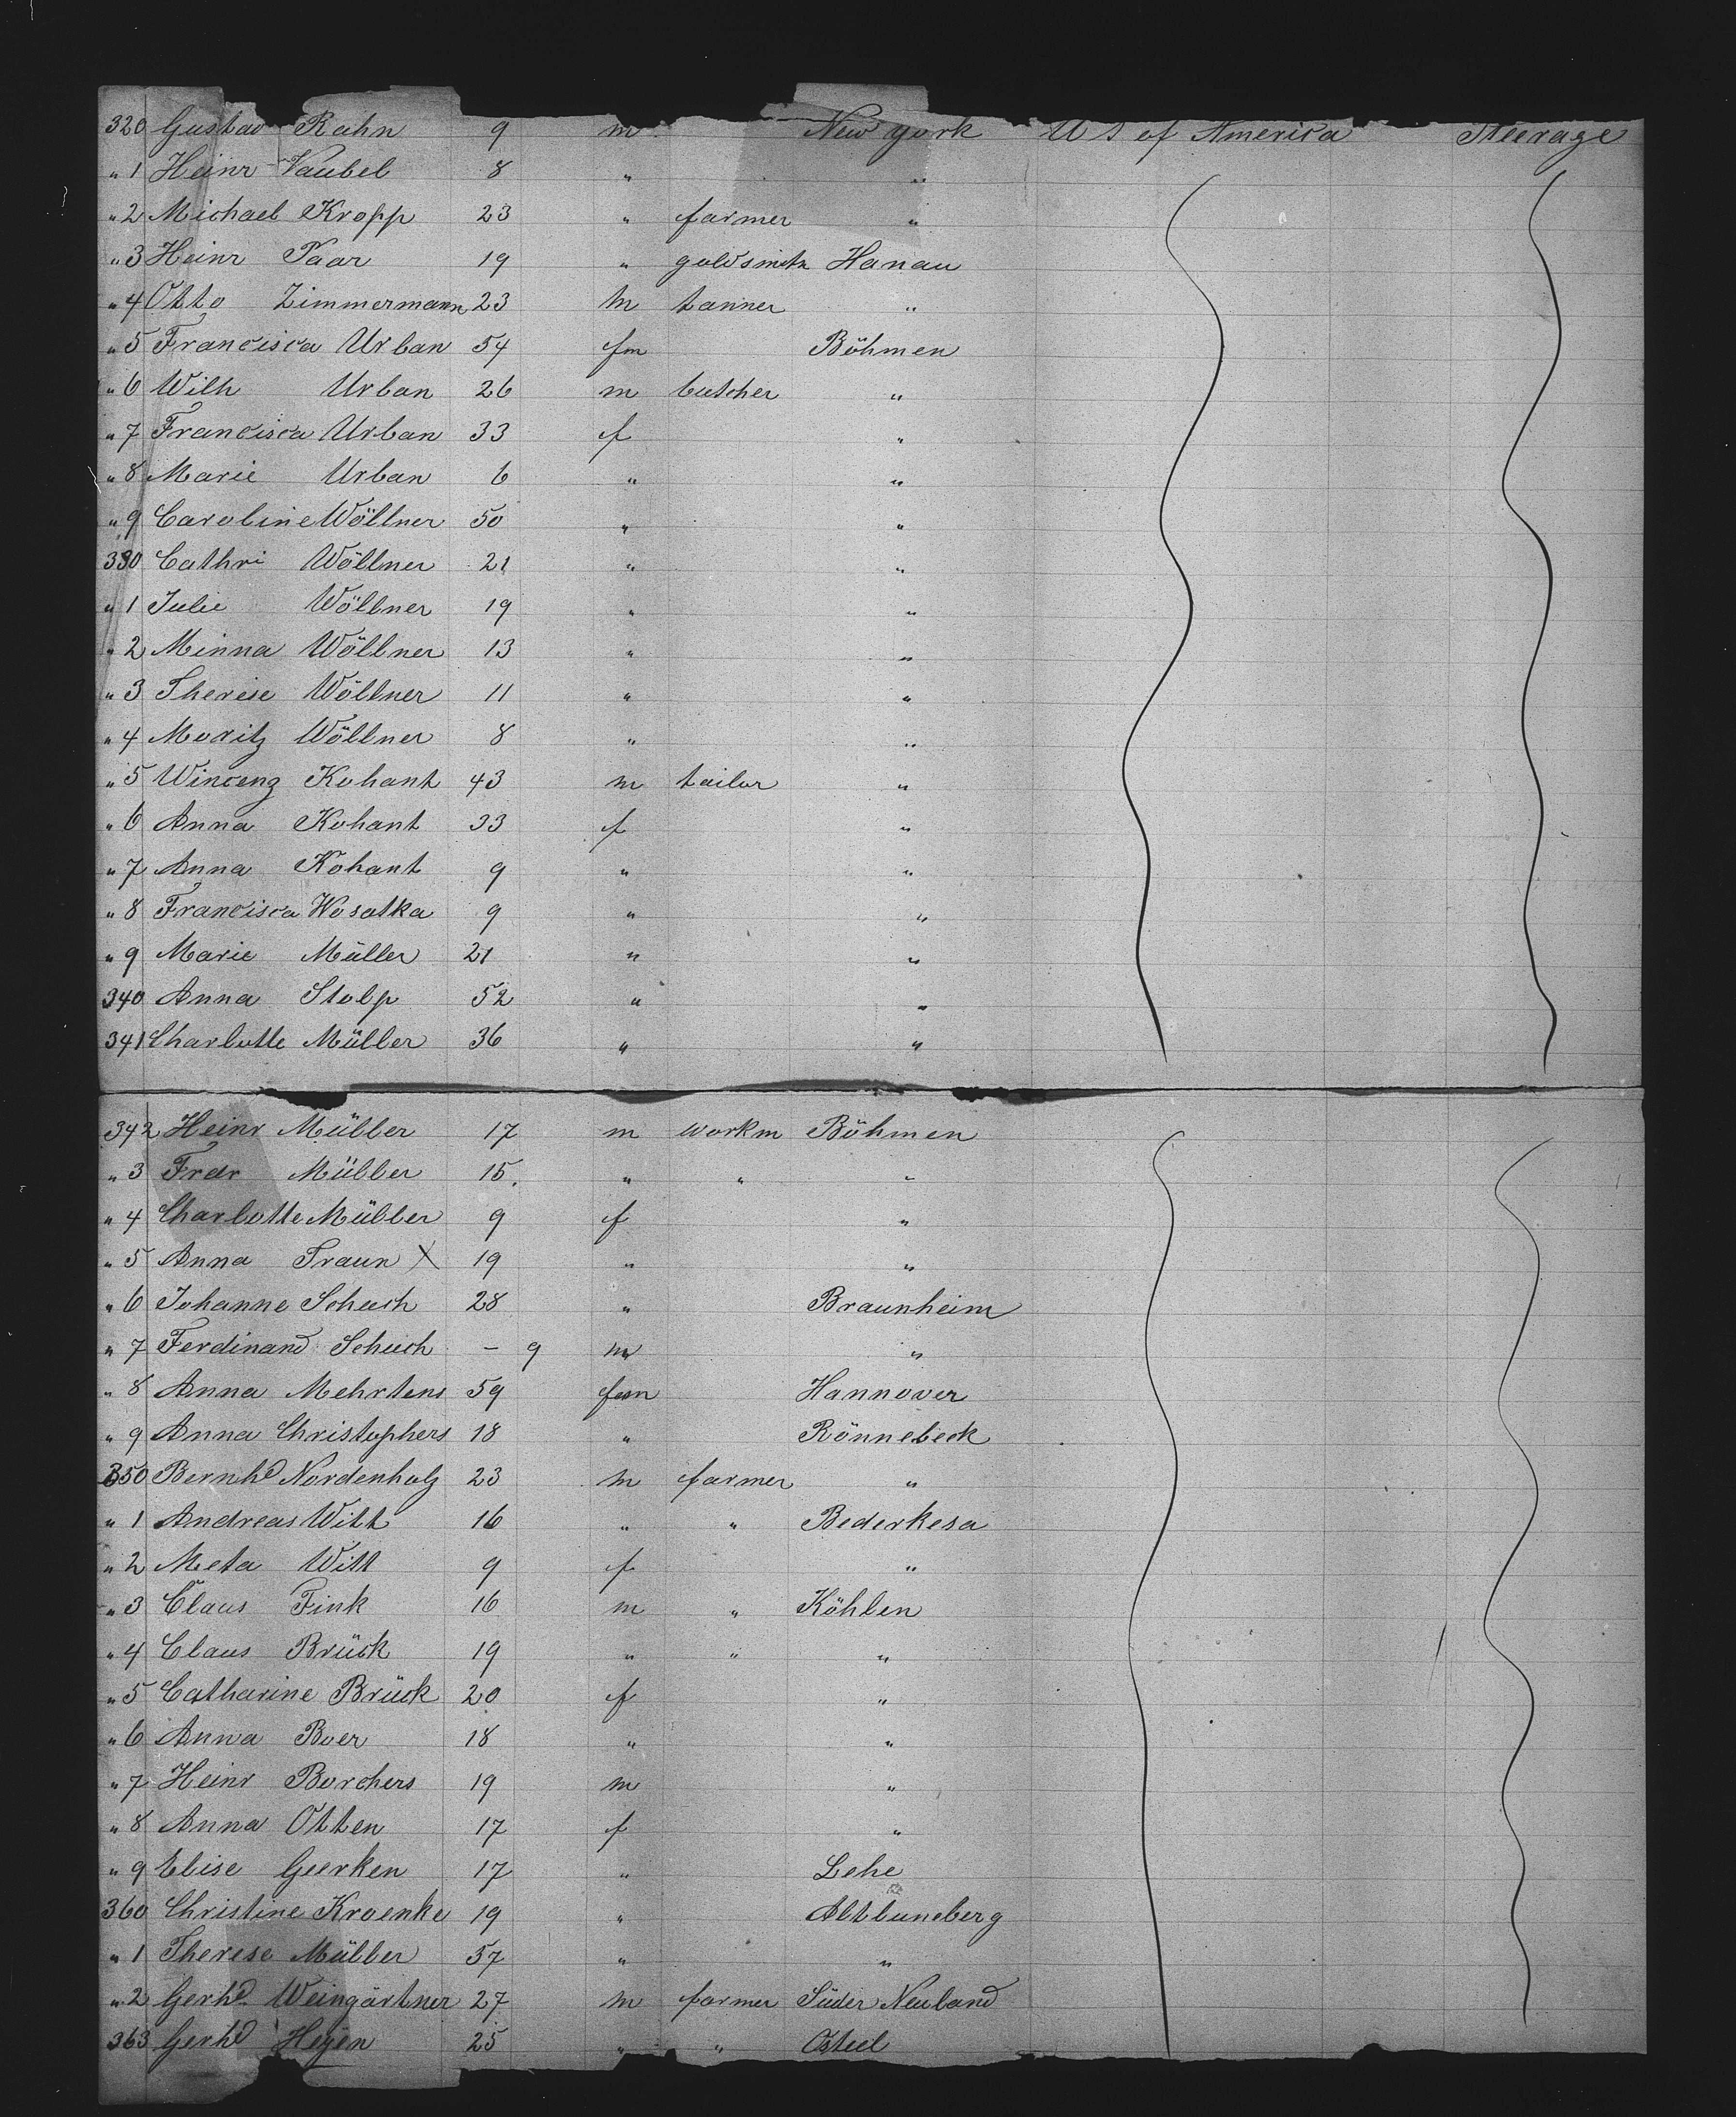 320 Gustav Rahn 9 m New York U S of America Steerage
" 1 Heinr Vaubel 8 " "
" 2 Michael Kropp 23 " farmer "
" 3 Heinr Paar 19 " goldsmith Hanau
" 4 Otto Zimmermann 23 m tanner "
" 5 Francisca Urban 54 fm Böhmen
" 6 Wilh Urban 26 m butcher "
" 7 Francisca Urban 33 f "
" 8 Marie Urban 6 " "
" 9 Caroline Wöllner 50 " "
330 Cathri Wöllner 21 " "
" 1 Julie Wöllner 19 " "
" 2 Minna Wöllner 13 " "
" 3 Therese Wöllner 11 " "
" 4 Moritz Wöllner 8 " "
" 5 Wincenz Kohant 43 m tailor "
" 6 Anna Kohant 33 f "
" 7 Anna Kohant 9 " "
" 8 Francisca Wosatka 9 " "
" 9 Marie Müller 21 " "
340 Anna Stolp 52 " "
341 Charlotte Müller 36 " "
342 Heinr Müller 17 m workm Böhmen
" 3 Frdr Müller 15. " " "
" 4 Charlotte Müller 9 f "
" 5 Anna Traun X 19 " "
" 6 Johanne Schuch 28 " Braunheim
" 7 Ferdinand Schuch - 9 m "
" 8 Anna Mehrtens 59 fem Hannover
" 9 Anna Christophers 18 " Rönnebeck
350 Bernhd Nordenholz 23 m farmer "
" 1 Andreas Witt 16 " " Bederkesa
" 2 Meta Witt 9 f "
" 3 Claus Fink 16 m " Köhlen
" 4 Claus Brück 19 " " "
" 5 Catharine Brück 20 f "
" 6 Anna Boer 18 " "
" 7 Heinr Borchers 19 m "
" 8 Anna Otten 17 f "
" 9 Elise Geerken 17 " Lehe
360 Christine Kroenke 19 " Altluneberg
" 1 Therese Müller 57 " "
" 2 Gerhd Weingärtner 27 m farmer Süder Neuland
363 Gerhd Heyen 25 " " Osteel